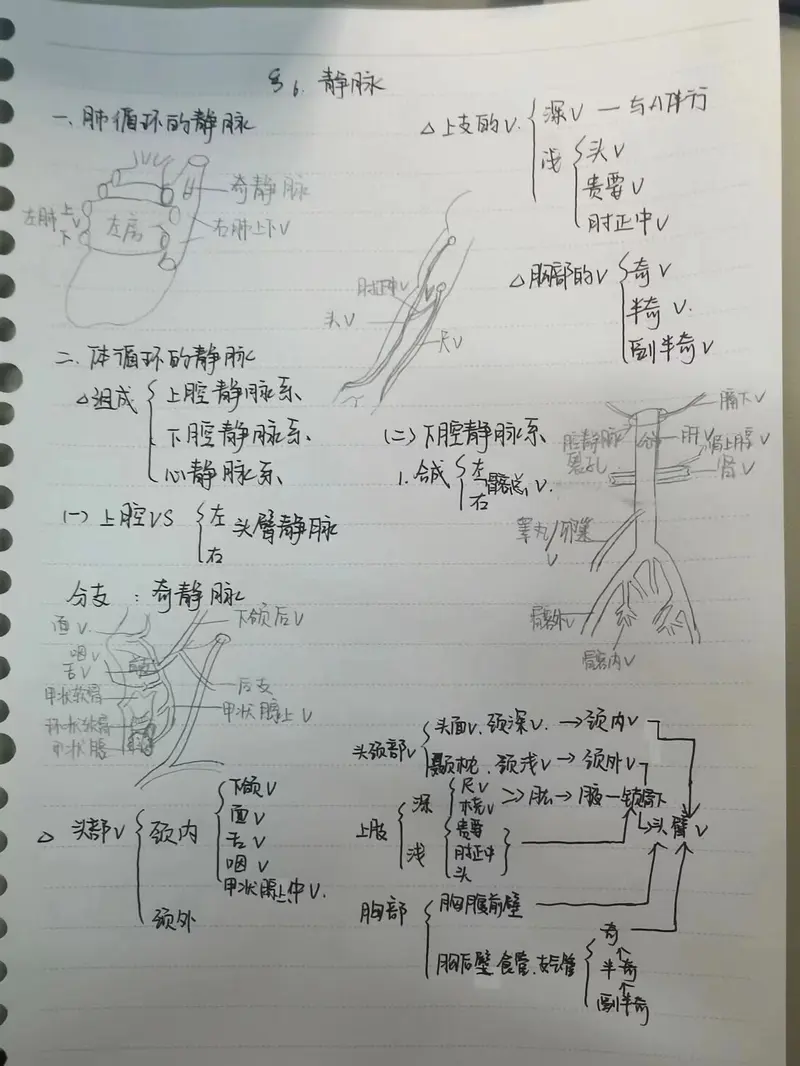 §6. 静脉
一、肺循环的静脉
奇静脉
左肺上
下
V
左房
右肺上下V
△上支的V.
深V — 与A伴行
浅
头V
贵要V
肘正中V
肘正中V
头V
尺V
△胸部的V
奇V
半奇V.
副半奇V
二、体循环的静脉
△组成
上腔静脉系、
下腔静脉系、
心静脉系、
(一)上腔VS
左
右
头臂静脉
分支:奇静脉
面V
咽V
舌V
甲状软骨
环状软骨
甲状腺
下颌后V
后支
甲状腺上V
△头部V
颈内
下颌V
面V
舌V
咽V
甲状腺上、中V.
颈外
(二)下腔静脉系、
1.合成
左
右
髂总V.
膈下V
腔静脉
裂孔
肝V
肾上腺V
肾V
睾丸/卵巢
V
髂外V
髂内V
头颈部V
头面V、颈深V. →颈内V
颞枕、颈浅V →颈外V
上肢
深
尺V
桡V
⇒肱→腋—锁骨下
→头臂V
浅
贵要
肘正中
头
胸部
胸腹前壁
胸后壁、食管、支气管
奇
半奇
副半奇